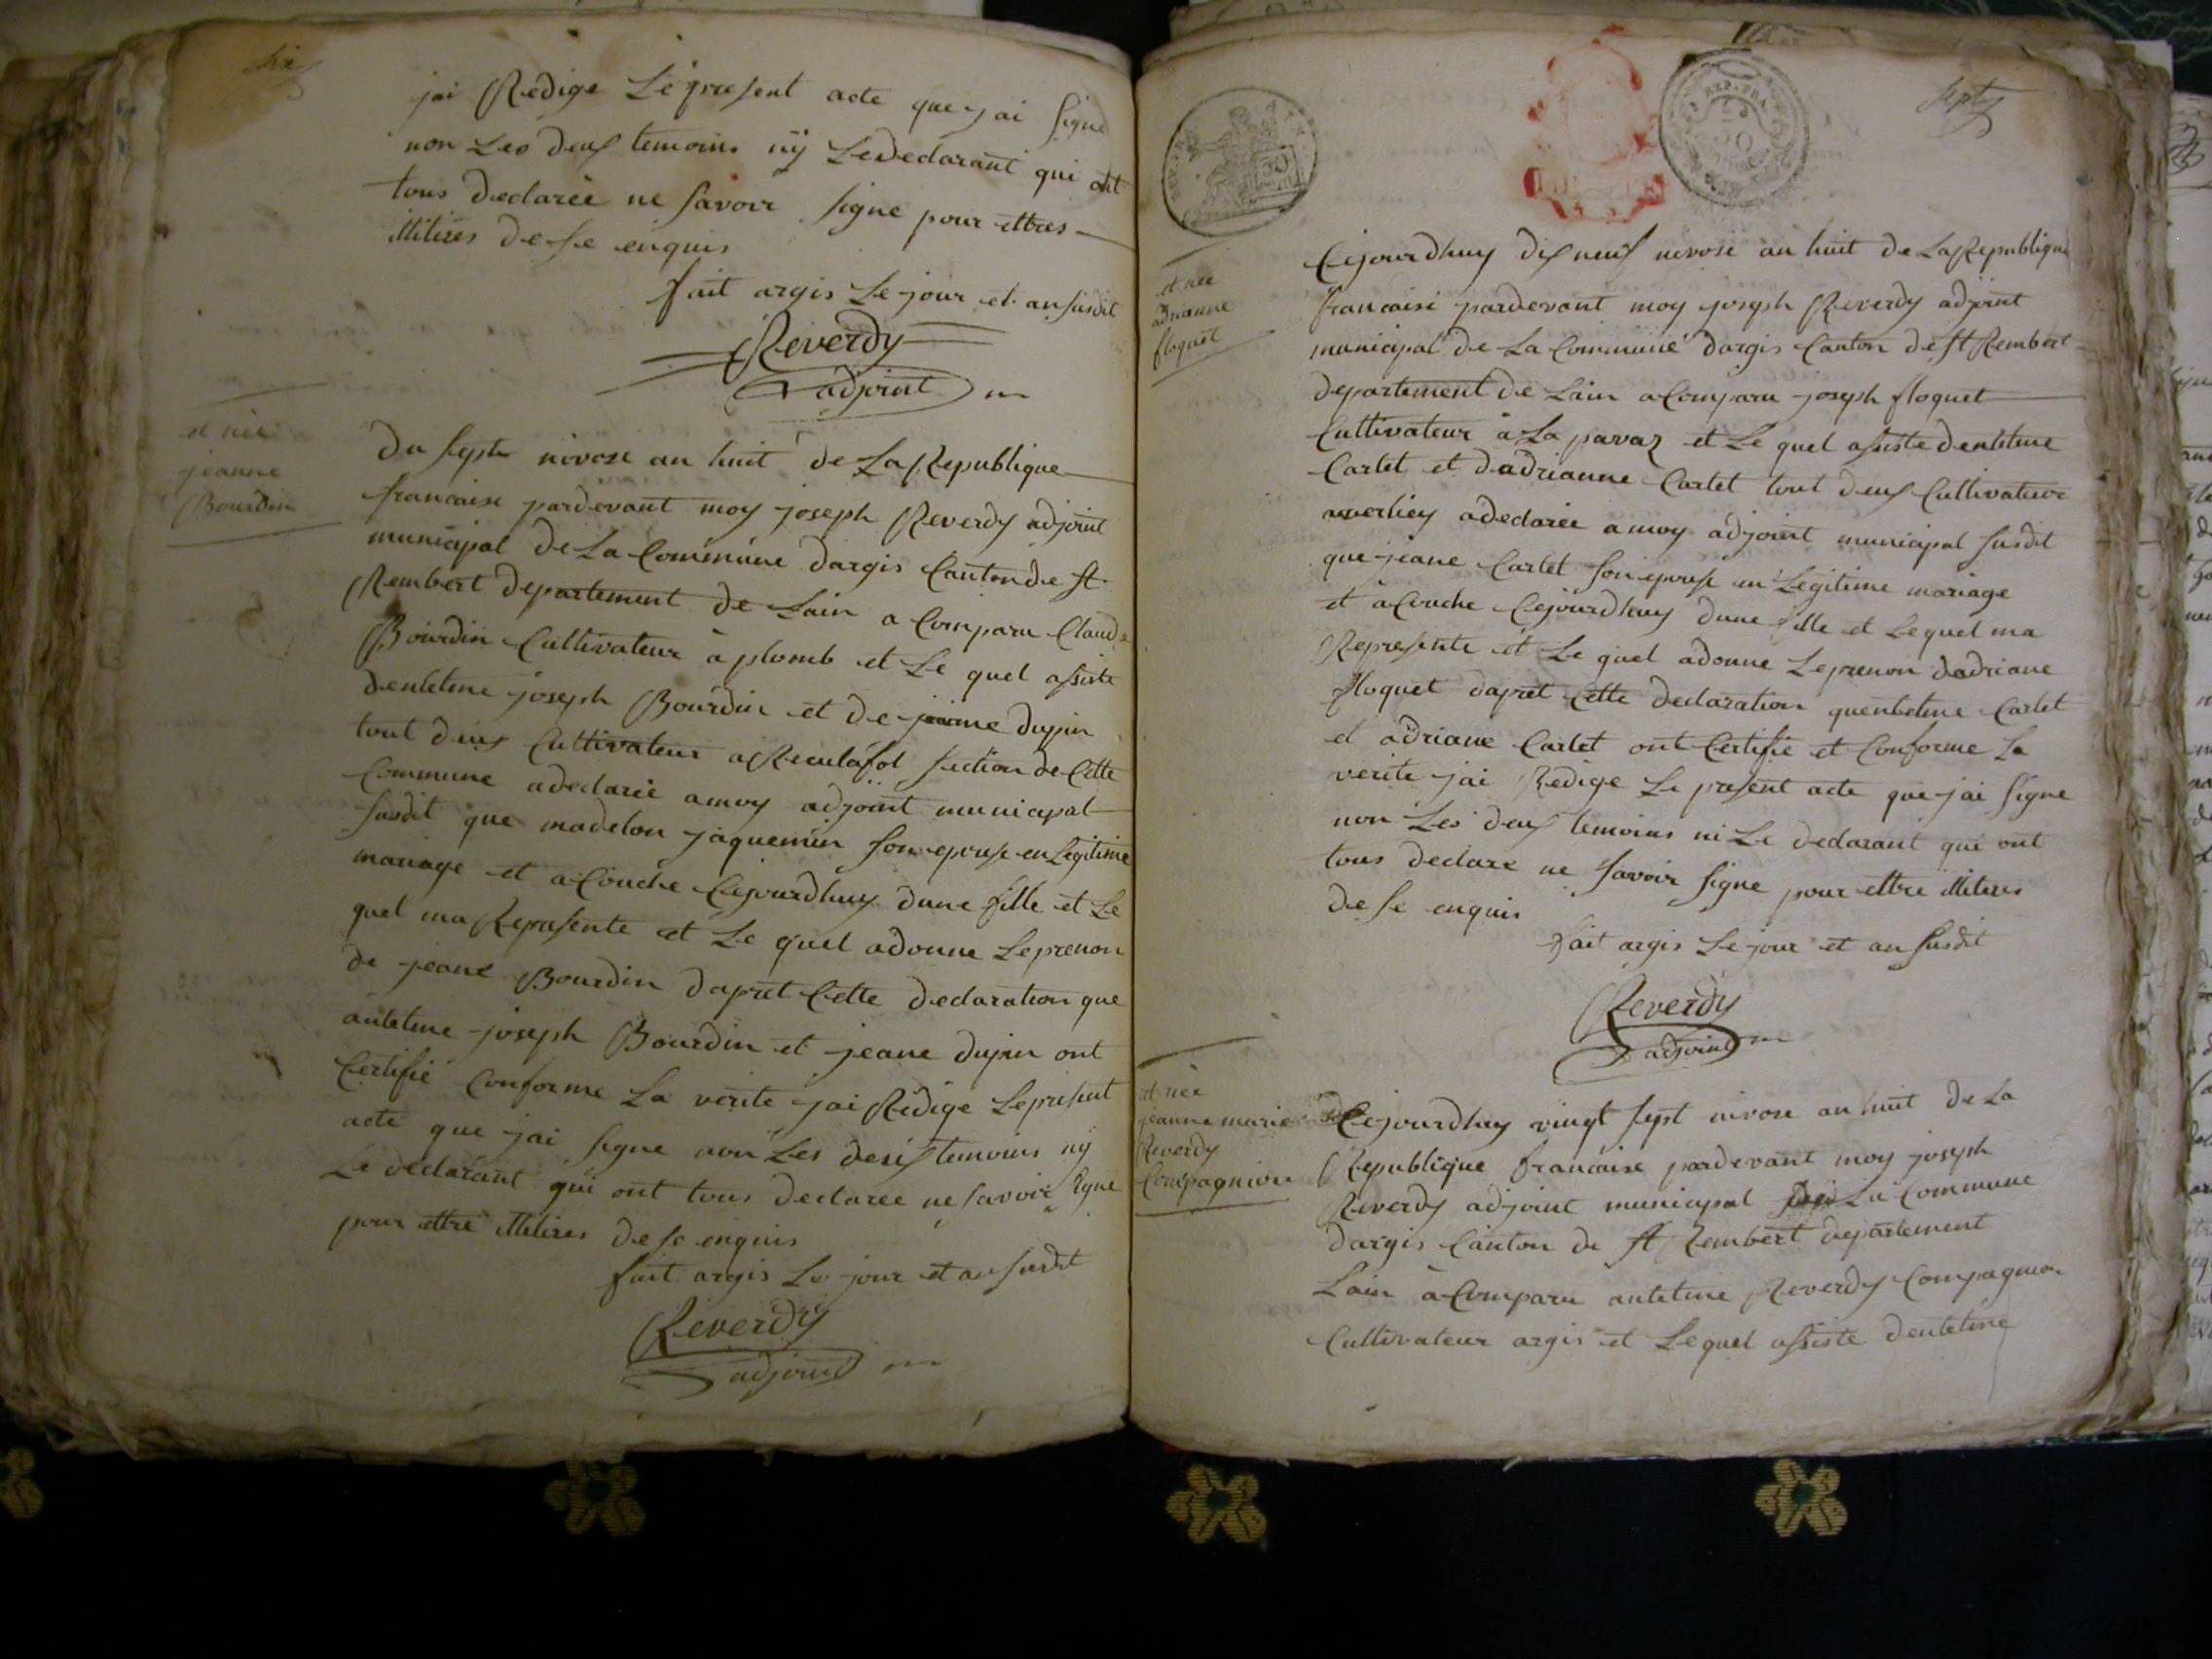 six
jai Redige Le present acte que jai signe
non Les deux temoins nÿ Le declarant qui ont
tous declarée ne savoir signe pour ettres
illitires de se enquis
fait argis Le jour et an susdit
Reverdy
adjoint
et née
jeanne
Bourdin
du sept nivose an huit de La Republique
francaise pardevant moy joseph Reverdy adjoint
municipal de La Commune dargis Canton de st
Rembert departement de Lain a Comparu Claude
Bourdin Cultivateur à plomb et Le quel assiste
dentetme joseph Bourdin et de jeanne dupin
tout deux Cultivateur a Reculafol section de Cette
Commune adeclarée amoy adjoint municipal
susdit que madelon jaquemin son epouse en Legitime
mariage et a Couche Cejourdhuy dune fille et Le
quel ma Represente et Le quel adonne Le prenon
de jeane Bourdin dapret Cette declaration que
antetme joseph Bourdin et jeane dupin ont
Certifié Conforme La verite jai Rédige Le present
acte que jai signe non Les deux temoins nÿ
Le declarant qui ont tous declaree ne savoir signe
pour ettre illitires de se enquis
fait argis Le jour et an susdit
Reverdy
adjoint
septz
REP. FRA.
50
et née
adrianne
floquet
Cejourdhuy dix neuf nivose an huit de La Republique
francaise pardevant moy joseph Reverdy adjoint
municipal de La Commune dargis Canton de st Rembert
departement de Lain a Comparu joseph floquet
Cultivateur à La pavaz et Le quel assiste dentetme
Cartet et dadrianne Cartet tout deux Cultivateur
adeclarée a moy adjoint municipal susdit
que jeane Cartet son epouse en Legitime mariage
et à Couche Cejourdhuy dune fille et Le quel ma
Represente et Le quel adonne Le prenon dadriane
floquet dapret Cette declaration quentetme Cartet
et adriane Cartet ont Certifie et Conforme La
verite jai Redige Le present acte que jai signe
non Les deux temoins ni Le declarant qui ont
tous declare ne savoir signe pour ettre illitires
de se enquis
fait argis Le jour et an susdit
Reverdy
adjoint
et née
jeanne marie
Reverdy
Compagnion
Cejourdhuy vingt sept nivose an huit de La
Republique francaise pardevant moy joseph
Reverdy adjoint municipal de La Commune
dargis Canton de st Rembert departement
Lain à Comparu antetme Reverdy Compagnion
Cultivateur argis et Le quel assiste dentetme